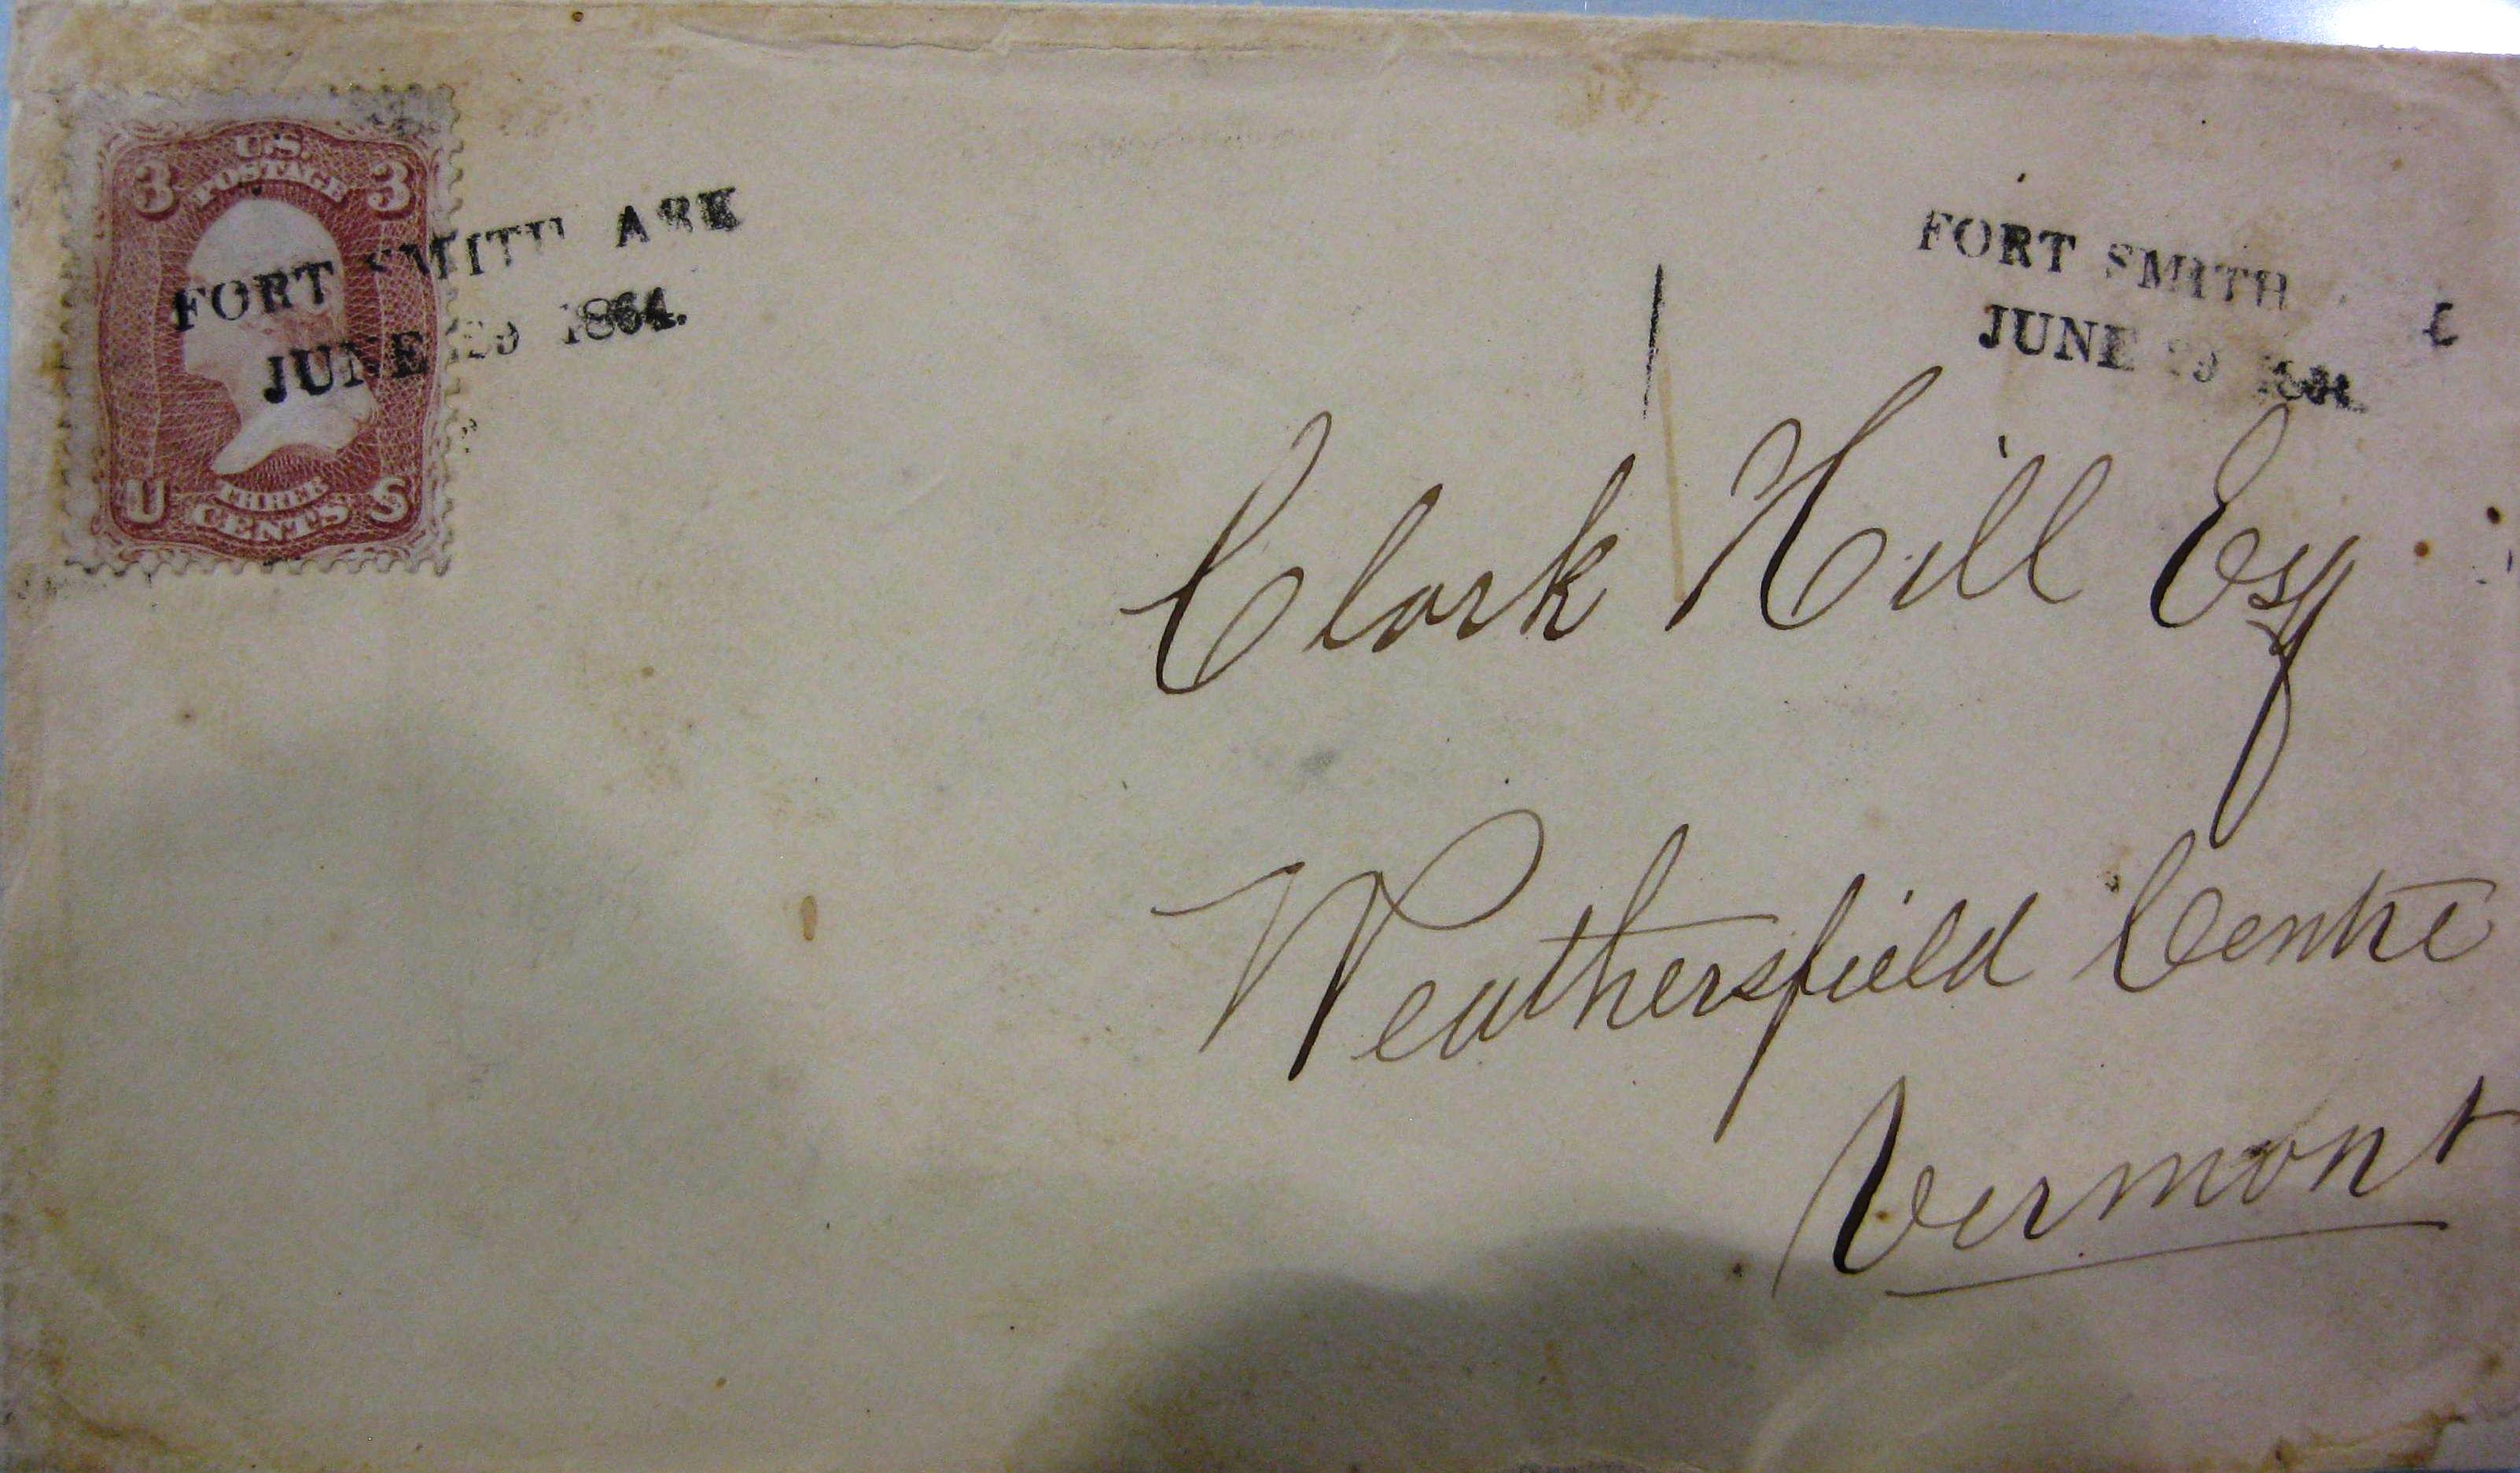 U.S.
POSTAGE
3 3
U S
THREE
CENTS
FORT SMITH ARK
JUNE 29 1864.
FORT SMITH
JUNE 29 1864.
Clark Hill Esq
Weathersfield Centre
Vermont